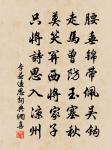 腰垂錦帶佩吳鉤
走馬曾防玉塞秋
莫笑關西將家子
只將詩思入涼州
李益邊思